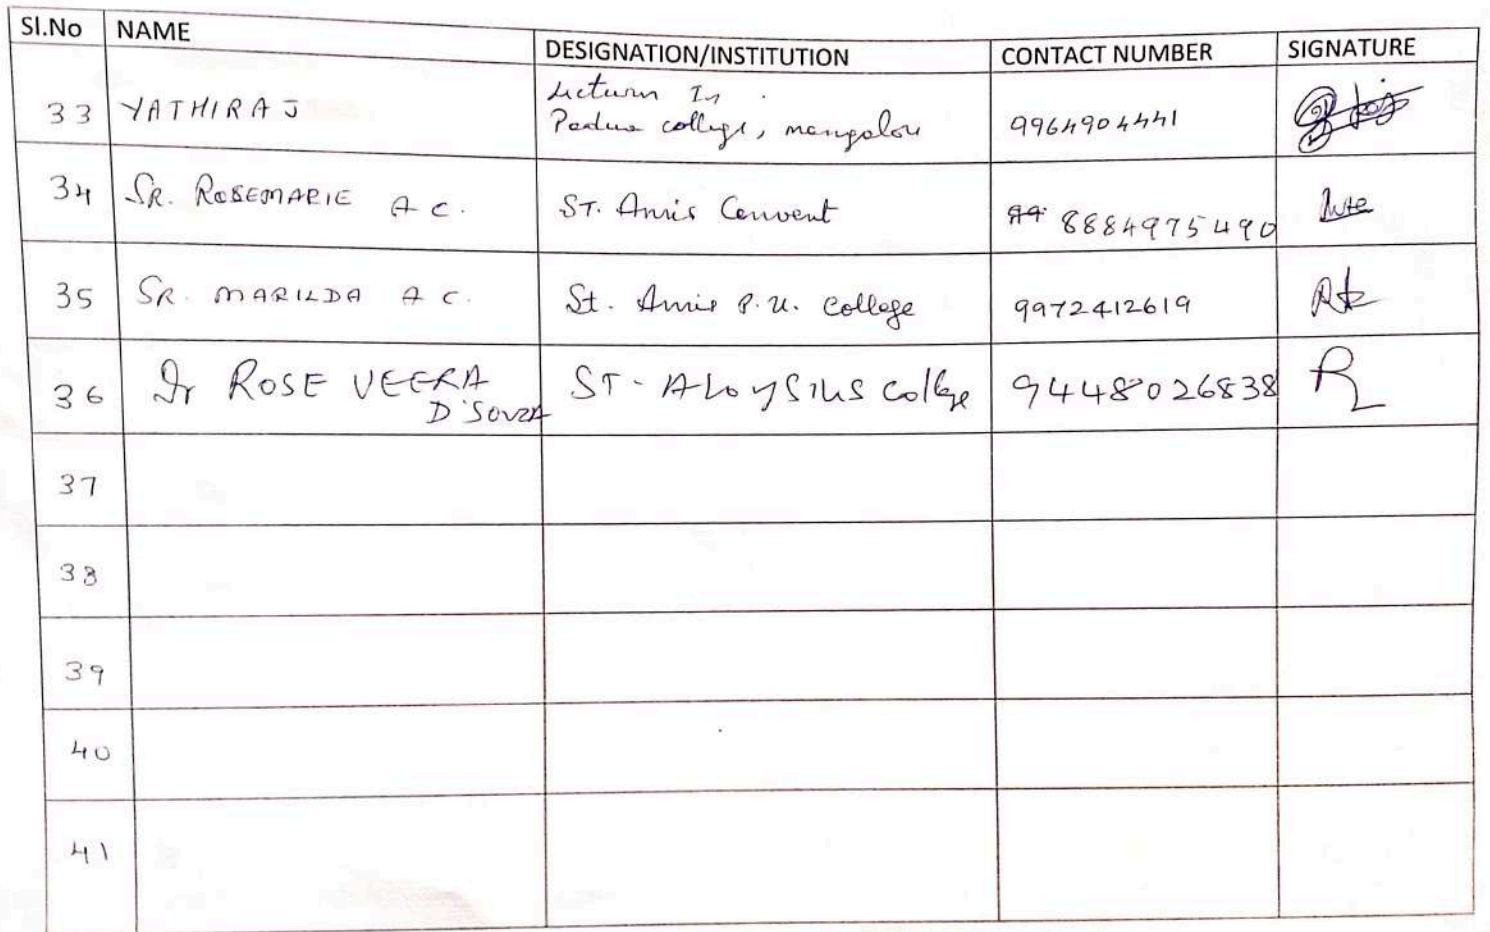 Sl.No NAME DESIGNATION/INSTITUTION CONTACT NUMBER SIGNATURE
33 YATHIRAJ Lecturer In Padua college, mangalou 9964904441
34 SR. ROSEMARIE A C. ST. Annis Convent 8884975490
35 SR. MARILDA A C. St. Annis P.U. College 9972412619
36 Dr ROSE VEERA D'SOUZA ST-ALOYSIUS College 9448026838
37
38
39
40
41